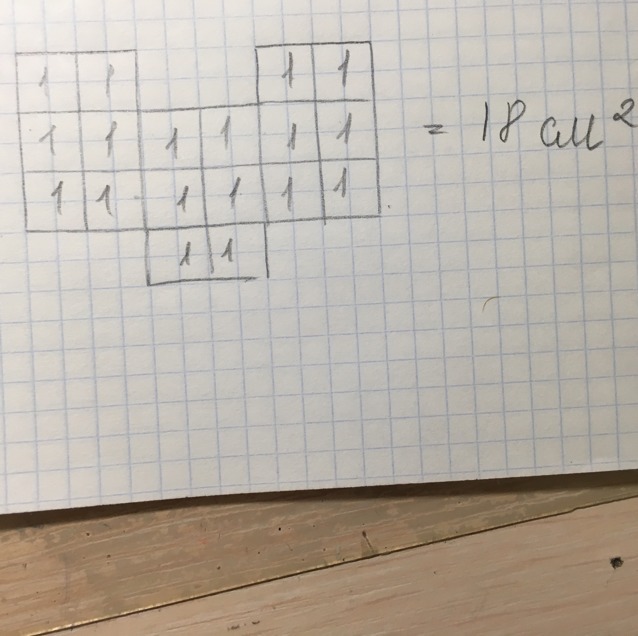 1 1 1 1
1 1 1 1 1 1 = 18 см²
1 1 1 1 1 1
1 1